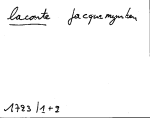 lacoste Jacquemynken
1723 / 1+2